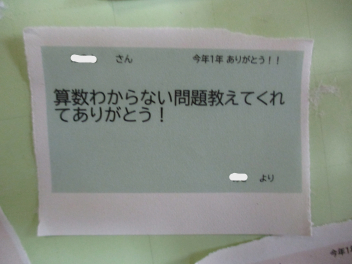 さん 今年1年 ありがとう！！
算数わからない問題教えてくれ
てありがとう！
より
今年1